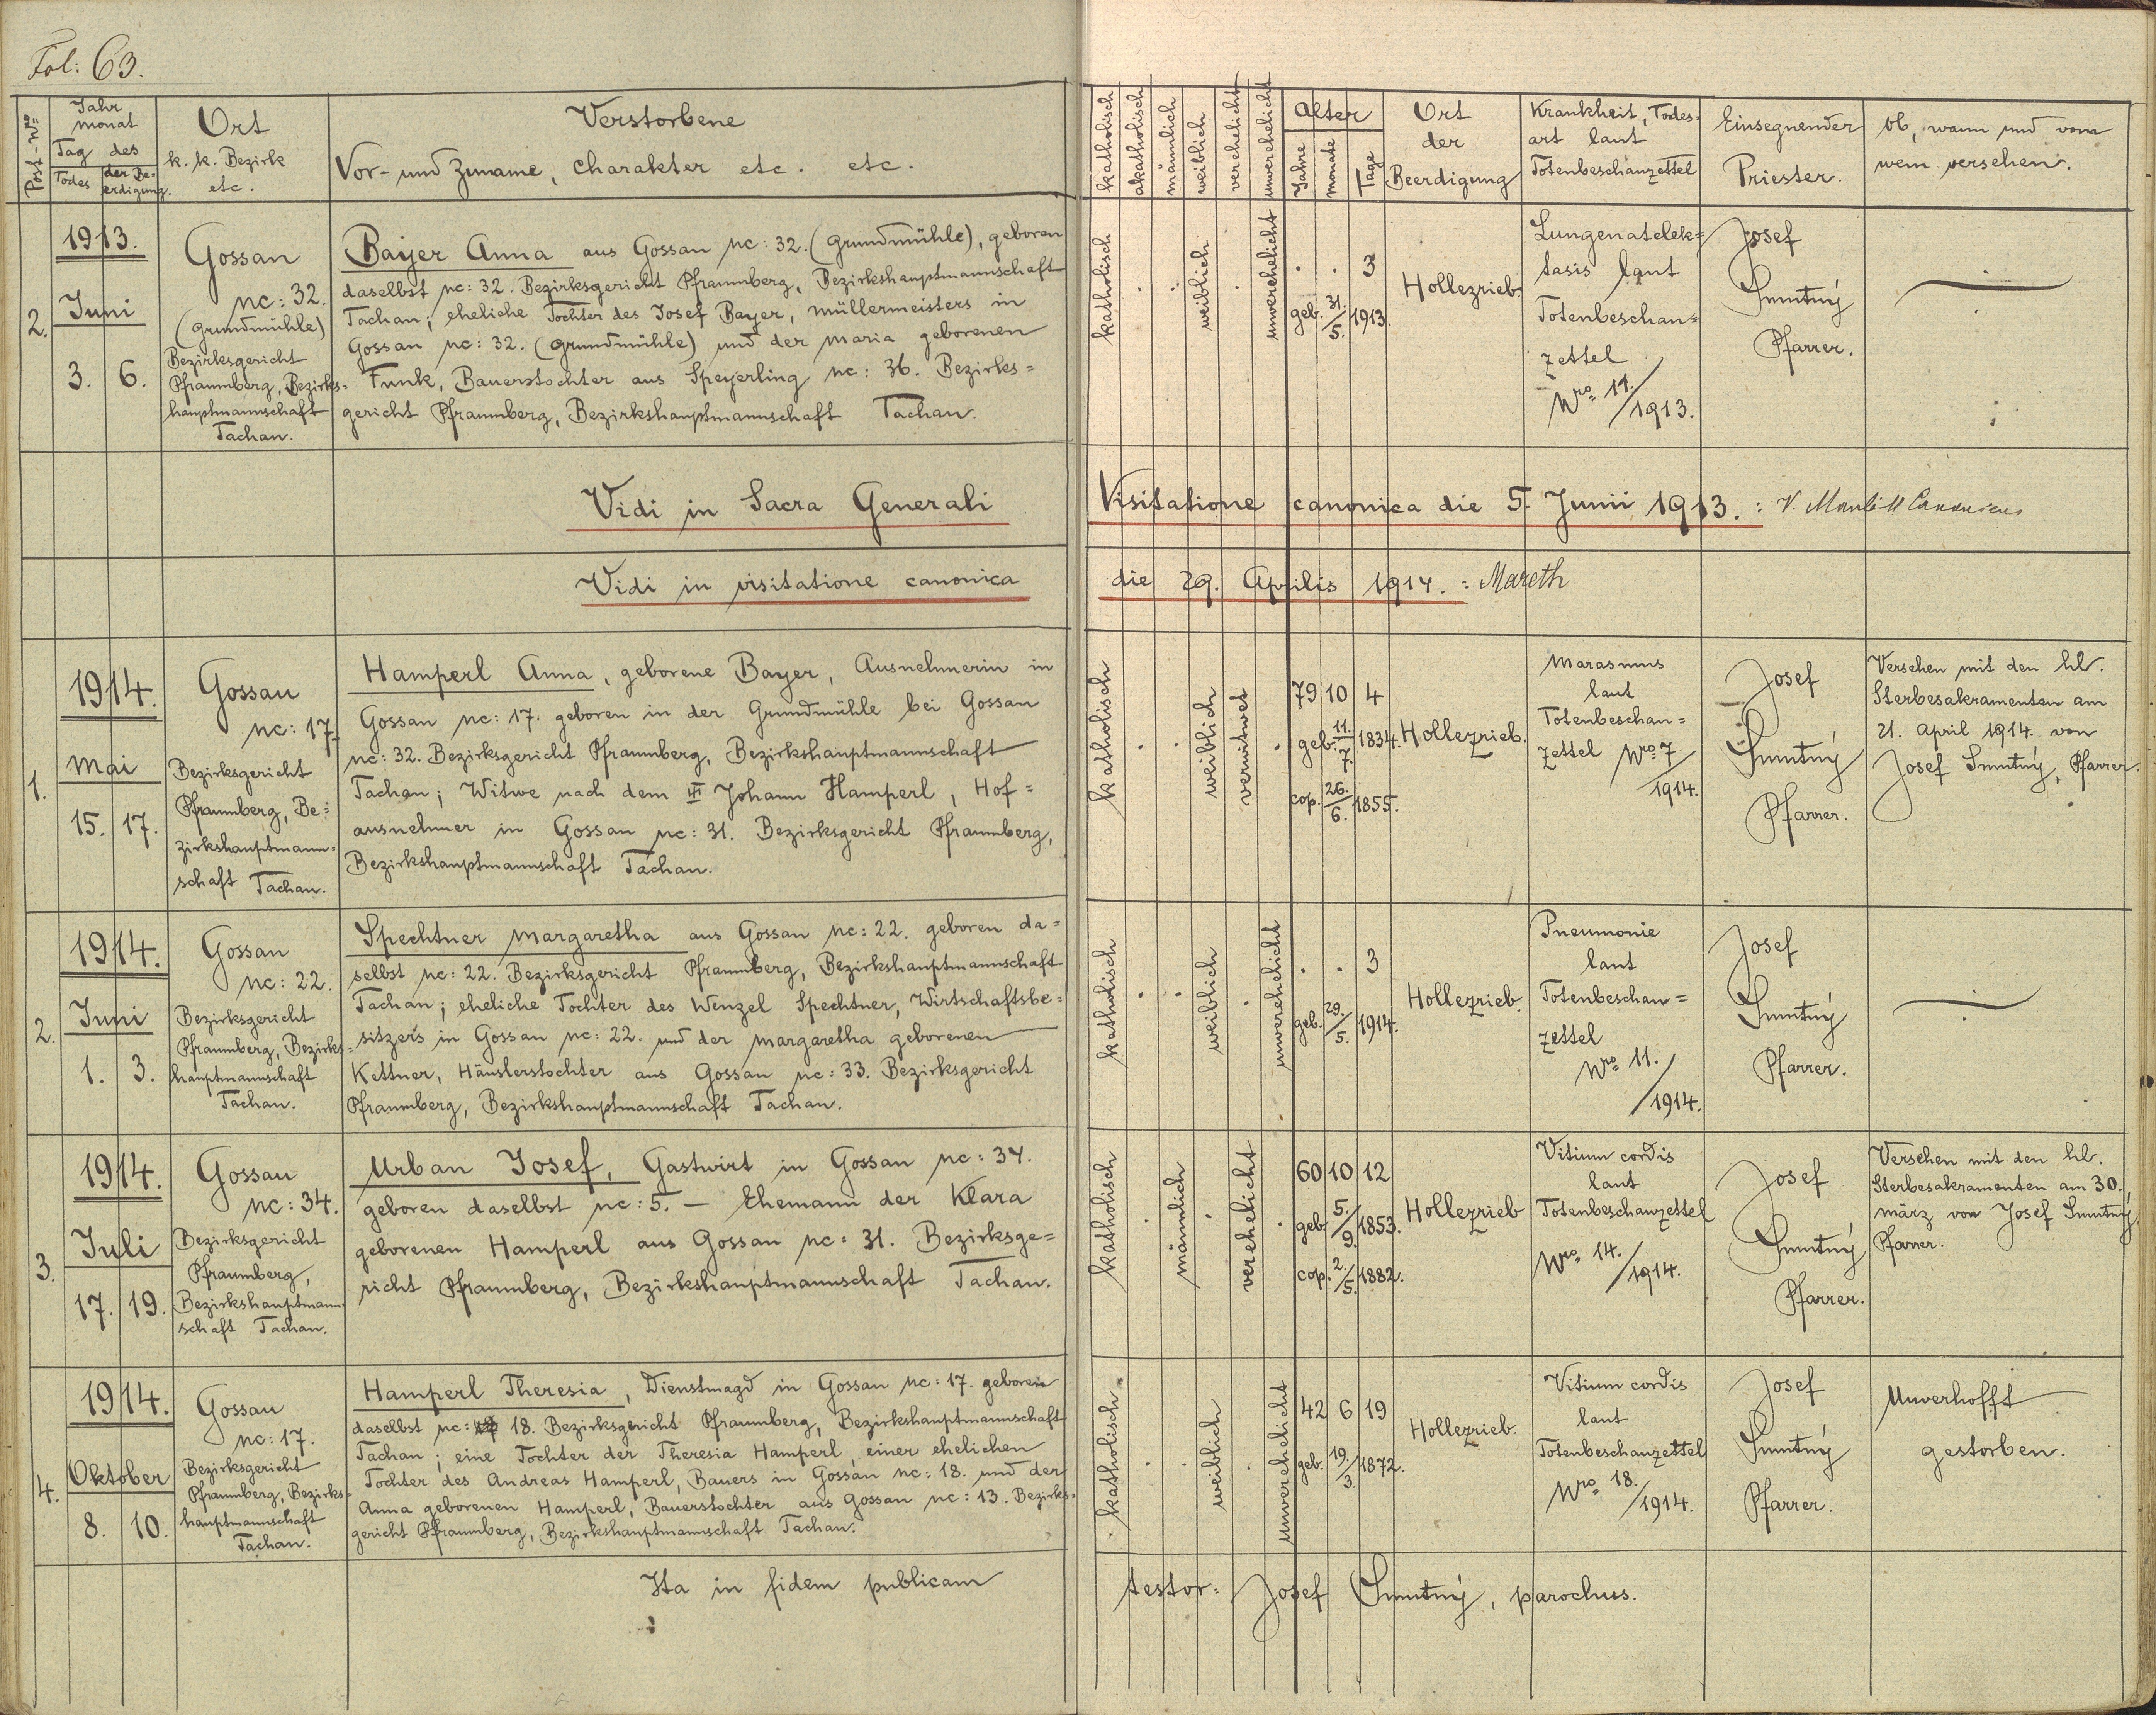 Fol: 63.
Post-Nro
Jahr
Monat
Tag des
Todes
der Be-
erdigung.
Ort
k. k. Bezirk
etc.
Verstorbene
Vor- und Zuname, Charakter etc. etc.
katholisch
akatholisch
männlich
weiblich
verehelicht
unverehelicht
Alter
Jahre
Monate
Tage
Ort
der
Beerdigung
Krankheit, Todes-
art laut
Totenbeschauzettel
Einsegnender
Priester.
Ob, wann und vom
wem versehen.
2.
1913.
Juni
3. 6.
Gossau
nc: 32.
(Grundmühle)
Bezirksgericht
Pfraumberg, Bezirks=
hauptmannschaft
Tachau.
Bayer Anna aus Gossau nc: 32. (Grundmühle), geboren
daselbst nc: 32. Bezirksgericht Pfraumberg, Bezirkshauptmannschaft
Tachau; eheliche Tochter des Josef Bayer, Müllermeisters in
Gossau nc: 32. (Grundmühle) und der Maria geborenen
Funk, Bauerstochter aus Speyerling nc: 36. Bezirks=
gericht Pfraumberg, Bezirkshauptmannschaft Tachau.
katholisch
weiblich
unverehelicht
. . 3
geb. 31./5. 1913.
Hollezrieb.
Lungenatelek=
tasis laut
Totenbeschau=
zettel
Nro 11./1913.
Josef
Smutný
Pfarrer.
Vidi in Sacra Generali Visitatione canonica die 5. Junii 1913. :
Vidi in visitatione canonica die 29. Aprilis 1914. : Mareth
1.
1914.
Mai
15. 17.
Gossau
nc: 17.
Bezirksgericht
Pfraumberg, Be=
zirkshauptmann=
schaft Tachau.
Hamperl Anna, geborene Bayer, Ausnehmerin in
Gossau nc: 17. geboren in der Grundmühle bei Gossau
nc: 32. Bezirksgericht Pfraumberg, Bezirkshauptmannschaft
Tachau; Witwe nach dem Johann Hamperl, Hof=
ausnehmer in Gossau nc: 31. Bezirksgericht Pfraumberg,
Bezirkshauptmannschaft Tachau.
katholisch
weiblich
verwitwet
79 10 4
geb. 11./7. 1834.
cop. 26./6. 1855.
Hollezrieb.
Marasmus
laut
Totenbeschau=
zettel Nro 7/1914.
Josef
Smutný
Pfarrer.
Versehen mit den hl.
Sterbesakramenten am
21. April 1914. von
Josef Smutný, Pfarrer.
2.
1914.
Juni
1. 3.
Gossau
nc: 22.
Bezirksgericht
Pfraumberg, Bezirks=
hauptmannschaft
Tachau.
Spechtner Margaretha aus Gossau nc: 22. geboren da=
selbst nc: 22. Bezirksgericht Pfraumberg, Bezirkshauptmannschaft
Tachau; eheliche Tochter des Wenzel Spechtner, Wirtschaftsbe=
sitzers in Gossau nc: 22. und der Margaretha geborenen
Kettner, Häuslerstochter aus Gossau nc: 33. Bezirksgericht
Pfraumberg, Bezirkshauptmannschaft Tachau.
katholisch
weiblich
unverehelicht
. . 3
geb. 29./5. 1914.
Hollezrieb.
Pneumonie
laut
Totenbeschau=
zettel
Nro 11./1914.
Josef
Smutný
Pfarrer.
3.
1914.
Juli
17. 19.
Gossau
nc: 34.
Bezirksgericht
Pfraumberg,
Bezirkshauptmann
schaft Tachau.
Urban Josef, Gastwirt in Gossau nc: 34.
geboren daselbst nc: 5. – Ehemann der Klara
geborenen Hamperl aus Gossau nc: 31. Bezirksge=
richt Pfraumberg, Bezirkshauptmannschaft Tachau.
katholisch
männlich
verehelicht
60 10 12
geb. 5./9. 1853.
cop. 2./5. 1882.
Hollezrieb
Vitium cordis
laut
Totenbeschauzettel
Nro 14./1914.
Josef
Smutný
Pfarrer.
Versehen mit den hl.
Sterbesakramenten am 30.
März von Josef Smutný,
Pfarrer.
4.
1914.
Oktober
8. 10.
Gossau
nc: 17.
Bezirksgericht
Pfraumberg, Bezirks=
hauptmannschaft
Tachau.
Hamperl Theresia, Dienstmagd in Gossau nc: 17. geboren
daselbst nc: 18. Bezirksgericht Pfraumberg, Bezirkshauptmannschaft
Tachau; eine Tochter der Theresia Hamperl, einer ehelichen
Tochter des Andreas Hamperl, Bauers in Gossau nc: 18. und der
Anna geborenen Hamperl, Bauerstochter aus Gossau nc: 13. Bezirks=
gericht Pfraumberg, Bezirkshauptmannschaft Tachau.
katholisch
weiblich
unverehelicht
42 6 19
geb. 19./3. 1872.
Hollezrieb.
Vitium cordis
laut
Totenbeschauzettel
Nro 18./1914.
Josef
Smutný
Pfarrer.
Unverhofft
gestorben.
Ita in fidem publicam testor: Josef Smutný, parochus.